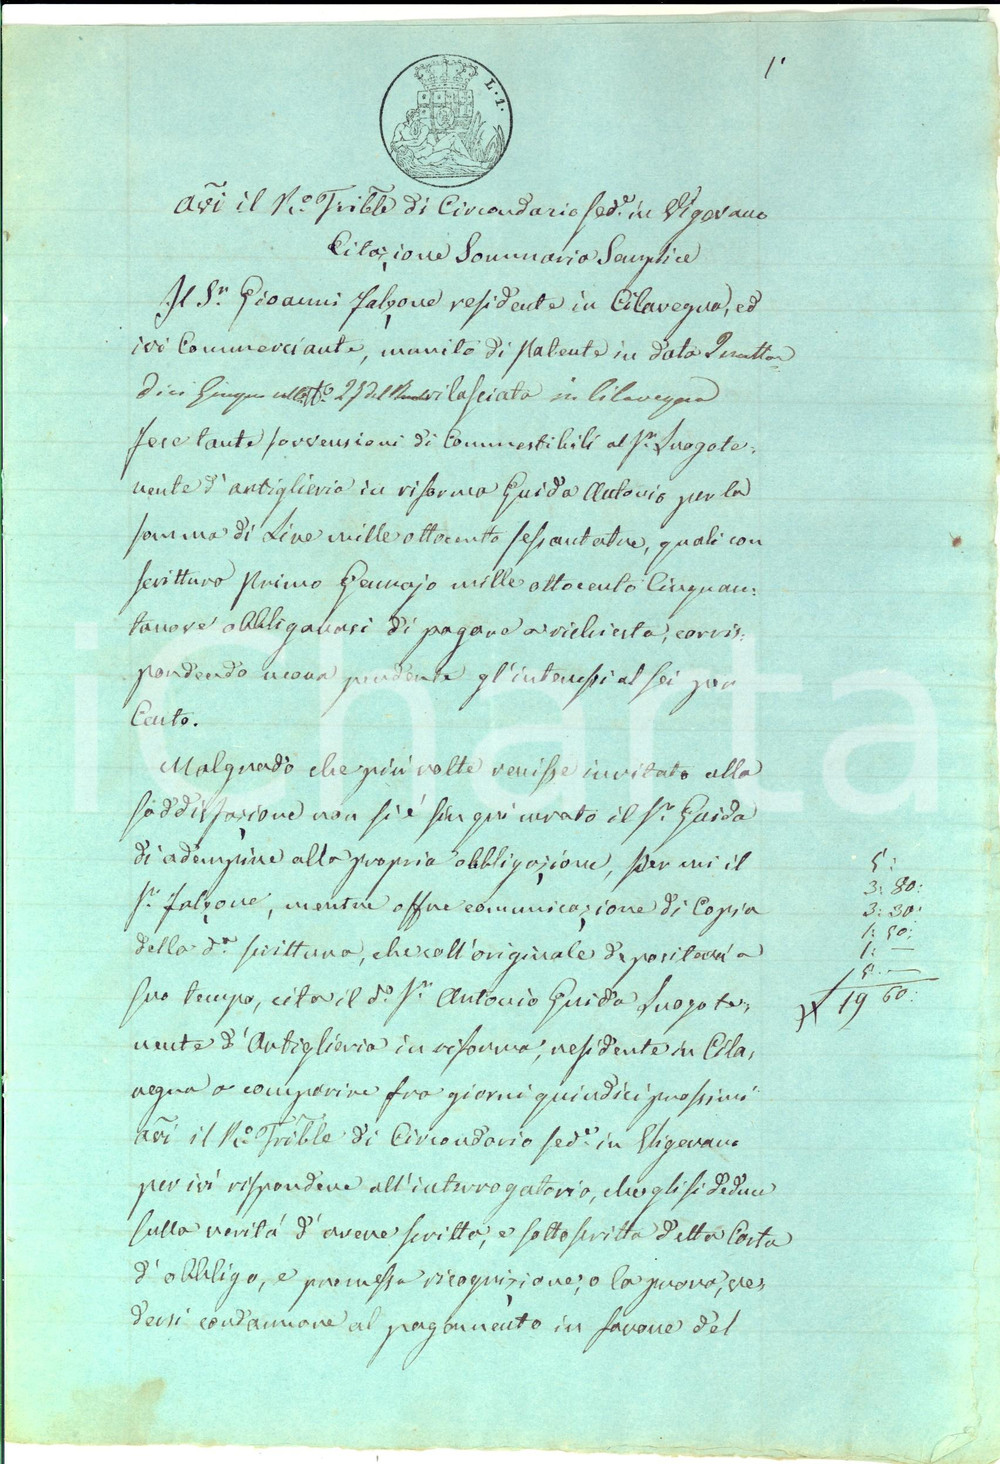 1.
L. 1.
avĩ il R.º Tribl̃e di Circondario sed.e in Vigevano
Citazione Sommaria Semplice
Il Sr. Gioanni Falzone residente in Cilavegna, ed
ivi Commerciante, munito di Patente in data Quattor-
dici Giugno rilasciata in Cilavegna
fece tante sovvensioni di Commestibili al Sr. Luogote-
nente d'artiglieria in riforma Guida Antonio per la
somma di Lire mille ottocento sessantatre, quali con
scrittura Primo Gennajo mille ottocento Cinquan-
tanove obbligavasi di pagare a richiesta, corris-
pondendo mora pendente gl'interessi al sei per
Cento.
Malgrado che più volte venisse invitato alla
soddisfazione non si è sin qui curato il Sr. Guida
di adempire alla propria obbligazione, Per cui il
Sr. Falzone, mentre offre comunicazione di Copia
della d.a scrittura, che coll'originale depositerà a
suo tempo, cita il d.º Sr. Antonio Guida Luogote-
nente d'Artiglieria in riforma, residente in Cila-
vegna a comparire fra giorni quindici prossimi
avĩ il R.º Tribl̃e di Circondario sed.e in Vigevano
per ivi rispondere all'interrogatorio, che gli si deduce
sulla verità d'avere scritta, e sottoscritta detta Carta
d'obbligo, e promessa ricognizione, o la prova, ve-
dersi condannare al pagamento in favore del
5:
3: 80:
3: 30:
1: 50:
1: —
5: —
19 60:
iCharta